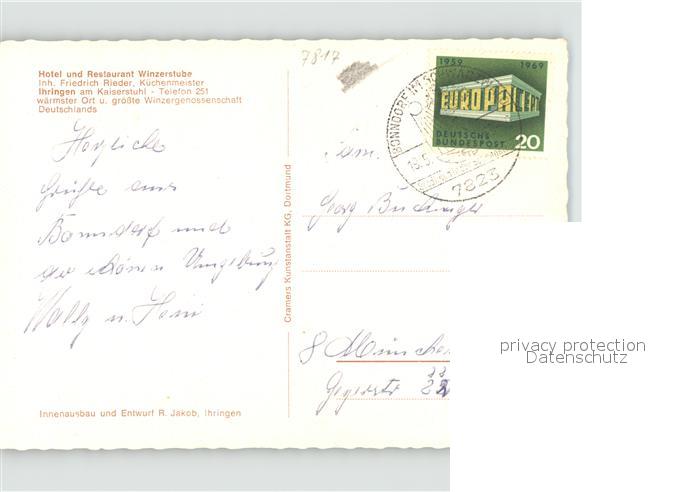 7817
Hotel und Restaurant Winzerstube
Inh. Friedrich Rieder, Küchenmeister
Ihringen am Kaiserstuhl - Telefon 251
wärmster Ort u. größte Winzergenossenschaft
Deutschlands
Herzliche
Grüße aus
Bonndorf und
der schönen Umgebung
Wally u. Heini
Innenausbau und Entwurf R. Jakob, Ihringen
Cramers Kunstanstalt KG, Dortmund
1959 1969
EUROPA CEPT
DEUTSCHE
BUNDESPOST 20
BONNDORF IM SCHWARZW
18.5.
7823
Fam.
Georg
8 München
privacy protection
Datenschutz